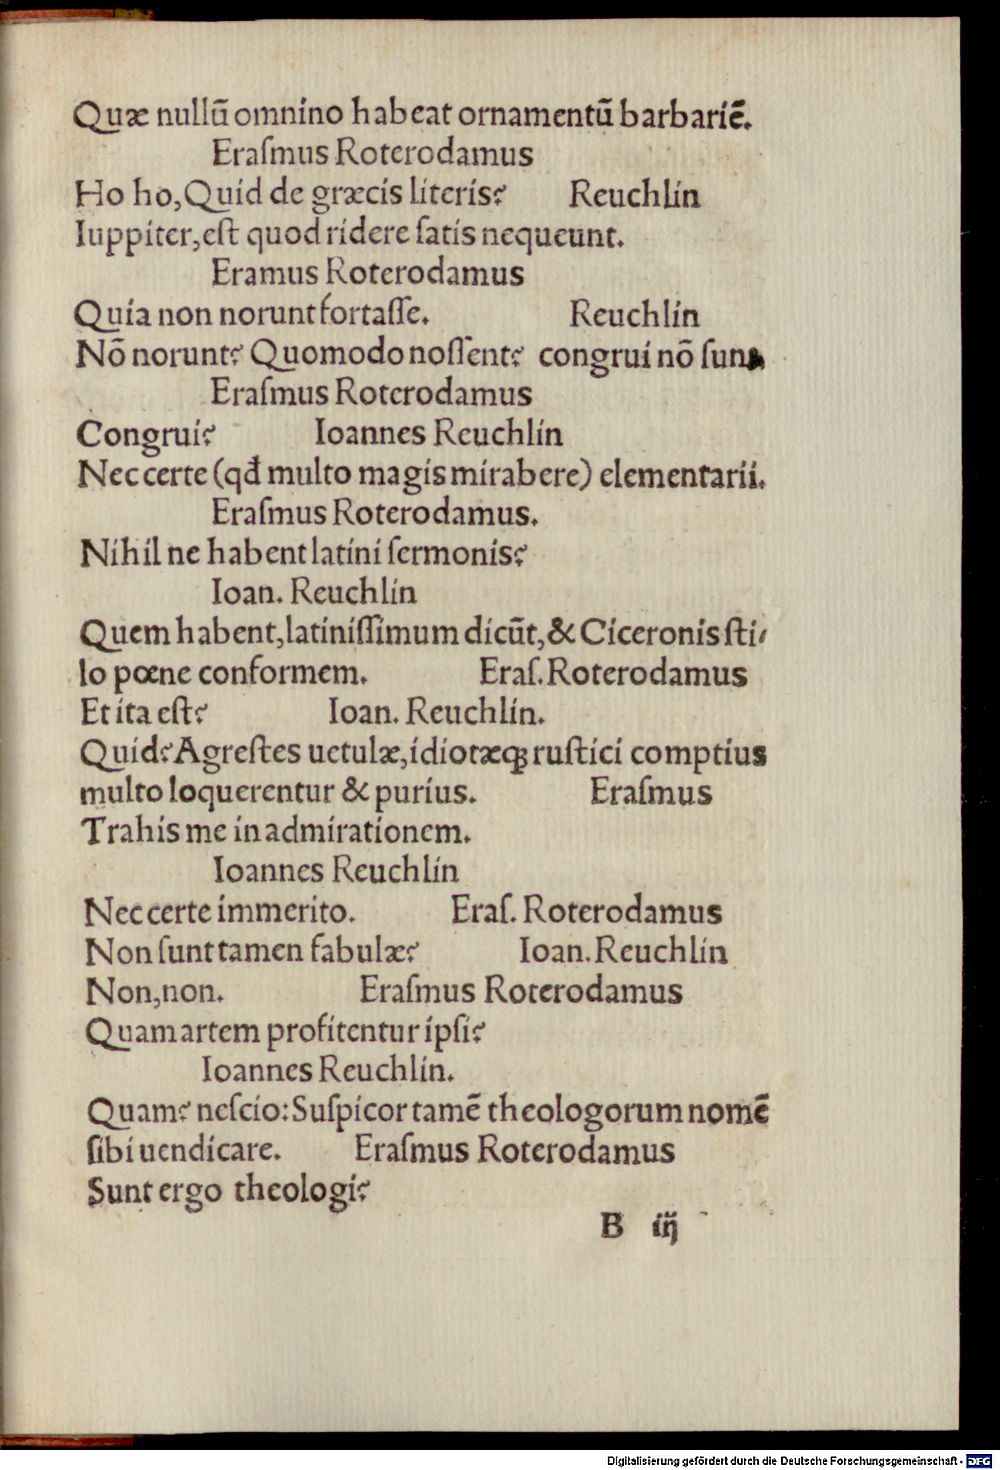 Quæ nullũ omnino habeat ornamentũ barbariẽ.
Eraſmus Roterodamus
Ho ho, Quid de græcis literis? Reuchlin
Iuppiter, eſt quod ridere ſatis nequeunt.
Eramus Roterodamus
Quia non norunt fortaſſe. Reuchlin
Nõ norunt? Quomodo noſſent? congrui nõ ſunt
Eraſmus Roterodamus
Congrui? Ioannes Reuchlin
Nec certe (qđ multo magis mirabere) elementarii.
Eraſmus Roterodamus.
Nihil ne habent latini ſermonis?
Ioan. Reuchlin
Quem habent, latiniſſimum dicũt, & Ciceronis ſti/
lo pœne conformem. Eraſ. Roterodamus
Et ita eſt? Ioan. Reuchlin.
Quid? Agreſtes uetulæ, idiotæq; ruſtici comptius
multo loquerentur & purius. Eraſmus
Trahis me in admirationem.
Ioannes Reuchlin
Nec certe immerito. Eraſ. Roterodamus
Non ſunt tamen fabulæ? Ioan. Reuchlin
Non, non. Eraſmus Roterodamus
Quam artem profitentur ipſi?
Ioannes Reuchlin.
Quam? neſcio: Suſpicor tamẽ theologorum nomẽ
ſibi uendicare. Eraſmus Roterodamus
Sunt ergo theologi?
B iij
Digitalisierung gefördert durch die Deutsche Forschungsgemeinschaft - DFG